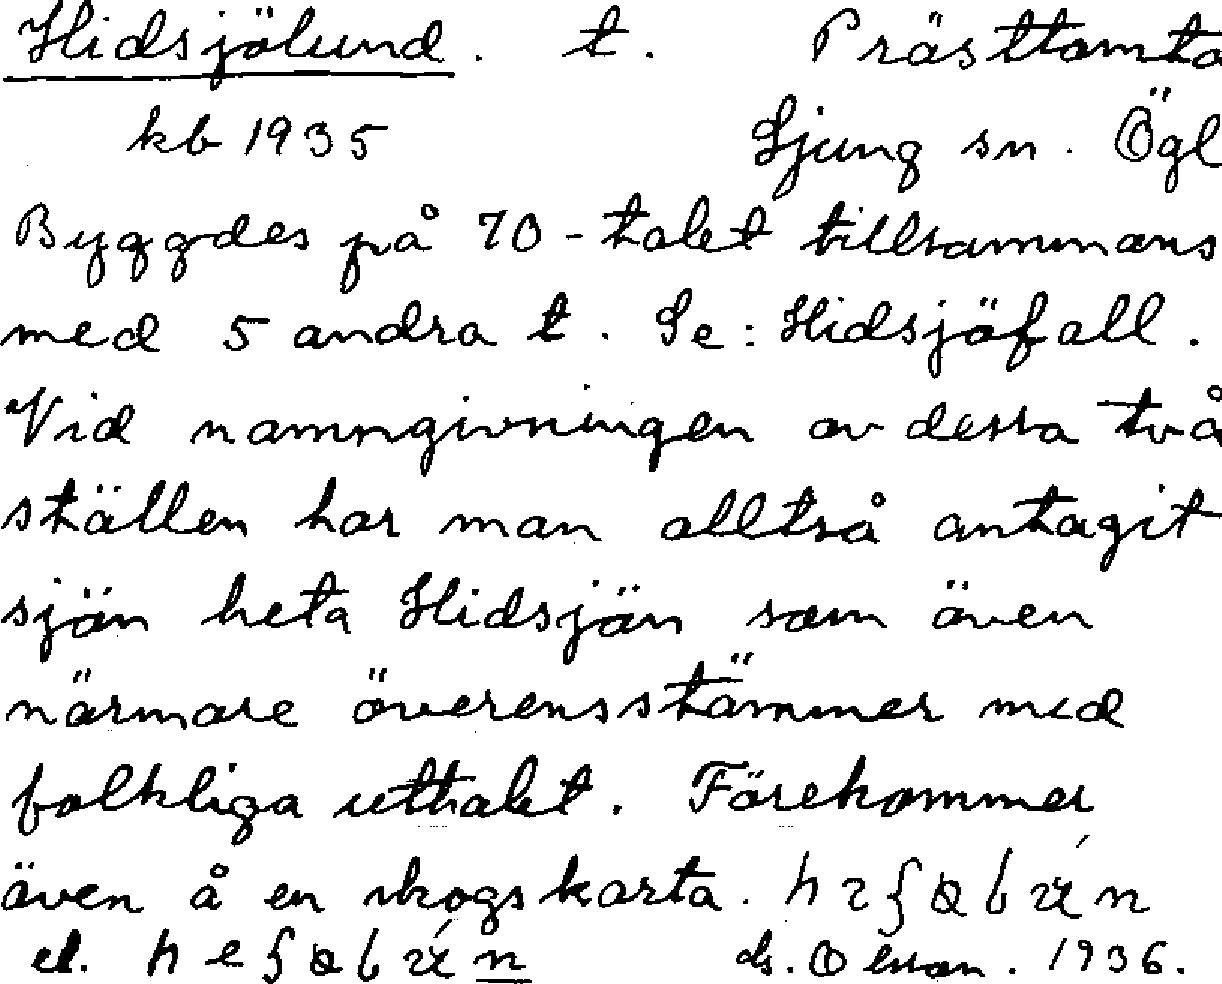 Hidsjölund. t. Prästtomta
kb 1935 Ljung sn. Ögl
Byggdes på 70-talet tillsammans
med 5 andra t. Se: Hidsjöfall.
Vid namngivningen av dessa två
ställen har man alltså antagit
sjön heta Hidsjön som även
närmare överensstämmer med
folkliga uttalet. Förekommer
även å en skogskarta.
el. ds. 1936.